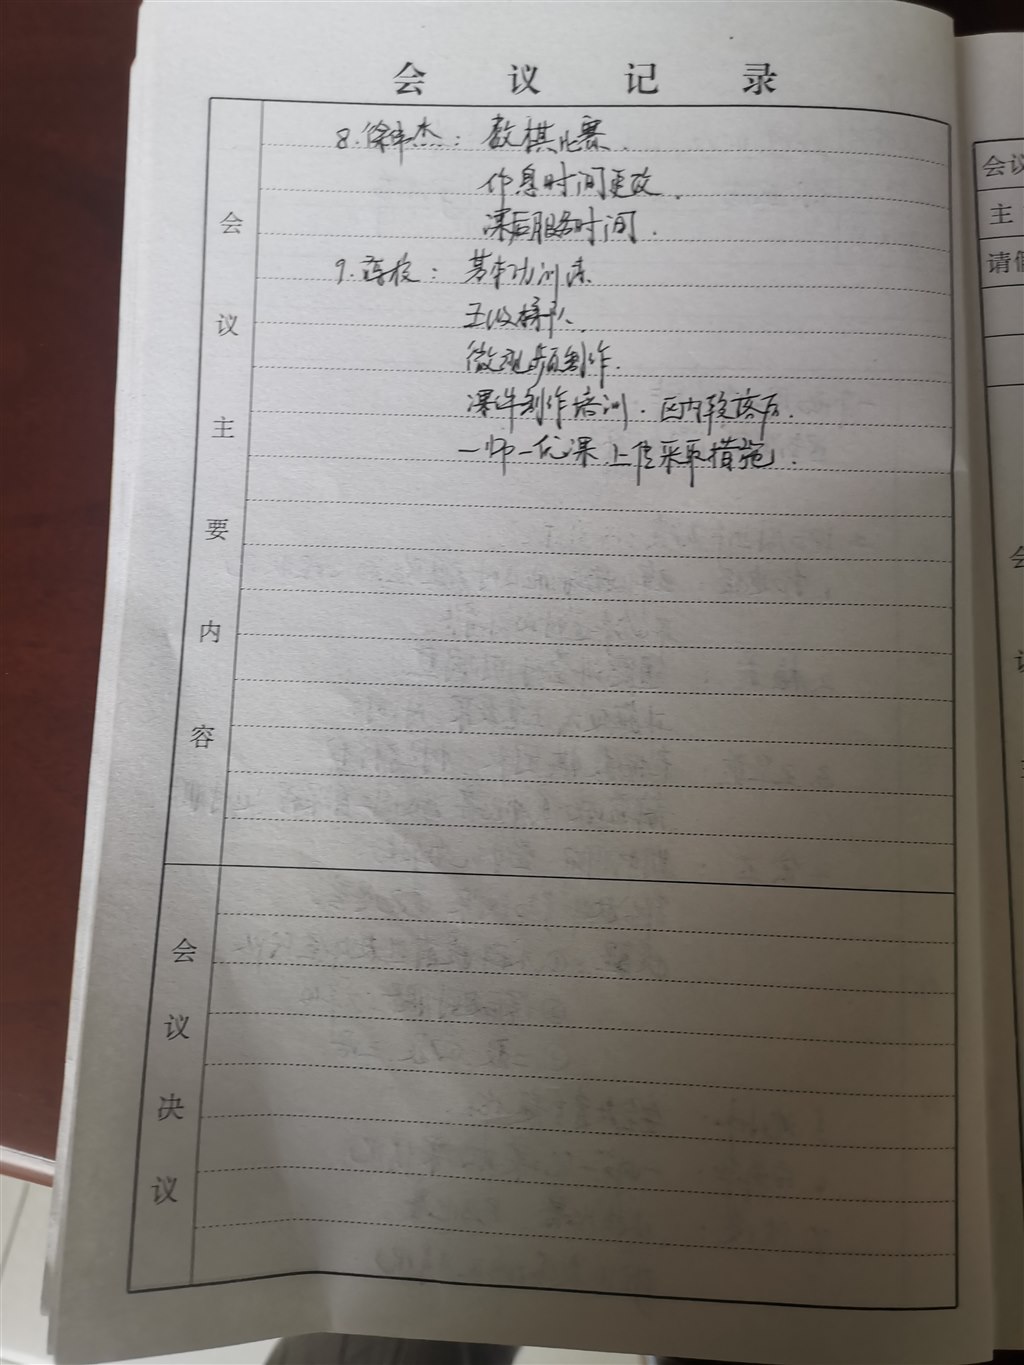 会议记录
会议主要内容
8.徐伟杰：数棋比赛.
作息时间更改.
课后服务时间.
9.薛校：基本功训练
五级梯队.
微视频制作.
课件制作培训.区内较落后.
一师一优课上传采取措施.
会议决议
会议
主
请假